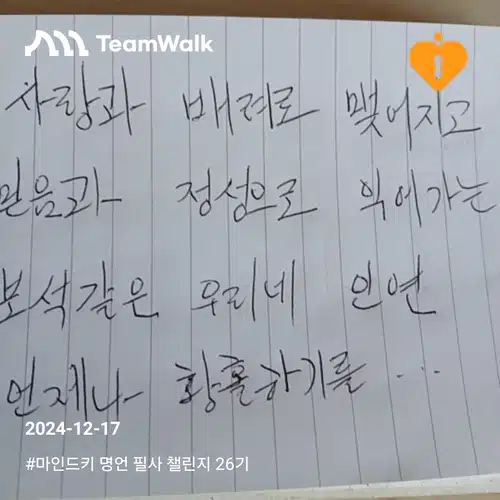 TeamWalk
사랑과 배려로 맺어지고
믿음과 정성으로 익어가는
보석같은 우리네 인연
언제나 황홀하기를 ...
2024-12-17
#마인드키 명언 필사 챌린지 26기